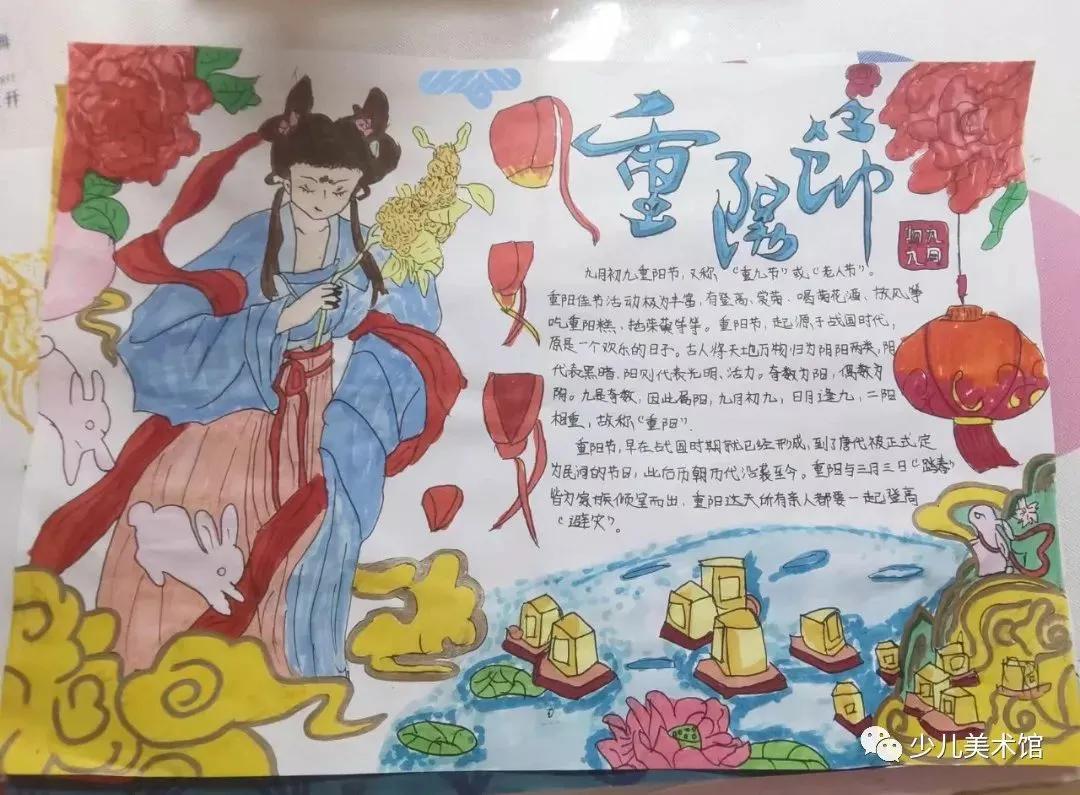 重陽節
九月
初九
九月初九重阳节，又称“重九节”或“老人节”。
重阳佳节活动极为丰富，有登高、赏菊、喝菊花酒、放风筝
吃重阳糕、插茱萸等等。重阳节，起源于战国时代，
原是一个欢乐的日子。古人将天地万物归为阴阳两类，阴
代表黑暗，阳则代表光明、活力。奇数为阳，偶数为
阴。九是奇数，因此属阳，九月初九，日月逢九，二阳
相重，故称“重阳”.
重阳节，早在战国时期就已经形成，到了唐代被正式定
为民间的节日，此后历朝历代沿袭至今。重阳与三月三日“踏春”
皆为家族倾室而出，重阳这天所有亲人都要一起登高
“避灾”。
少儿美术馆
开